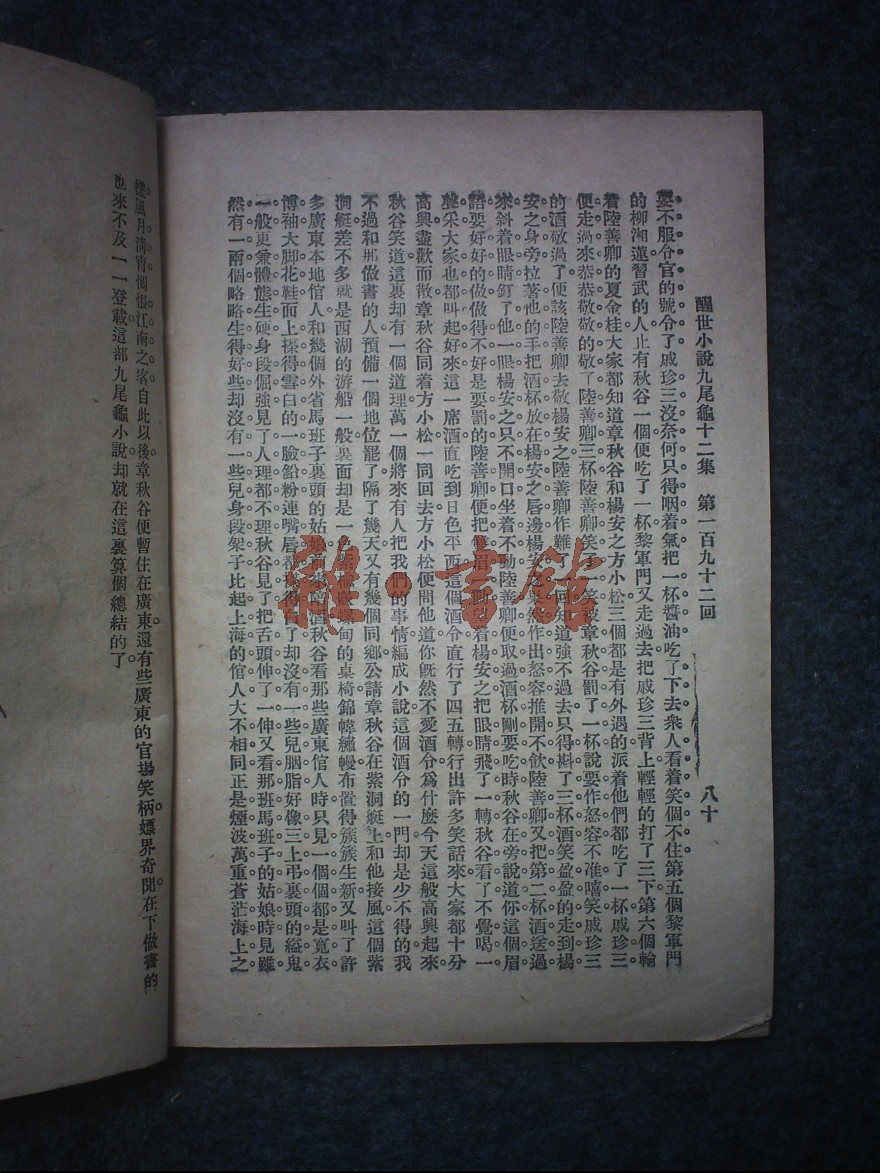 醒世小說九尾龜十二集　第一百九十二回　八十
要不服令官的號令了。戚珍三沒奈何只得咽着氣把一杯醬油吃了下去。衆人看着笑個不住。第五個黎軍門
的柳湘蓮習武的人。止有秋谷一個便吃了一杯。黎軍門又走過去把戚珍三背上輕輕的打了三下。第六個輪
着陸善卿的夏金桂。大家都知道章秋谷和楊安之方小松三個都是有外遇的。派着他們都吃了一杯。戚珍三
便走過來恭恭敬敬的敬了陸善卿三杯。陸善卿笑了一笑。被章秋谷罰了一杯。說要作怒容不准嘻笑。戚珍三
的酒敬過了便該陸善卿去敬楊安之。陸善卿作難了一回。知道強不過去。只得斟了三杯酒。笑盈盈的走到楊
安之身旁拉著他的手把酒杯放在楊安之唇邊。楊安之果然作出怒容推開不飲。陸善卿又把第二杯酒送過
來。斜着眼睛釘了他一眼。楊安之只不開口坐着不動。陸善卿便取過酒杯剛要吃時。秋谷在旁說道。你這個眉
語要好好的做。做得不好是要罰的。陸善卿便把雙眉
望着楊安之把眼睛飛了一轉。秋谷看了不覺喝一
聲采。大家也都叫起好來。這一席酒直吃到日色平西。這個酒令直行了四五轉。行出許多笑話來。大家都十分
高興。盡歡而散。章秋谷同着方小松一同回去。方小松便問他道。你既然不愛酒令。爲什麼今天這般高興起來。
秋谷笑道。這裏却有一個道理。萬一個將來有人把我們的事情編成小說。這個酒令的一門却是少不得的。我
不過和那做書的人預備一個地位罷了。隔了幾天又有幾個同鄉公請章秋谷在紫洞艇上和他接風。這個紫
洞艇差不多就是西湖的游船一般。裏面却是一色
甸的桌椅。錦幃繡幔布置得簇簇生新。又叫了許
多廣東本地倌人和幾個外省馬班子裏頭的姑娘前來陪酒。秋谷看那些廣東倌人時。只見一個個都是寬衣
博袖大脚花鞋。面上搽得雪白的一臉鉛粉。連嘴唇都搽得白了。却沒有一些兒胭脂。好像三上弔裏頭的縊鬼
一般。更兼體態生硬身段倔強。見了人理都不理。秋谷見了把舌頭伸了一伸。又看那班馬班子的姑娘時。見雖
然有一兩個略略生得好些。却沒有一些兒身段架子。比起上海的倌人大不相同。正是煙波萬重。蒼茫海上之
樓。風月淸宵。惆悵江南之客。自此以後章秋谷便暫住在廣東。還有些廣東的官場笑柄嫖界奇聞。在下做書的
也來不及一一登載。這部九尾龜小說却就在這裏算個總結的了。
雜·書館